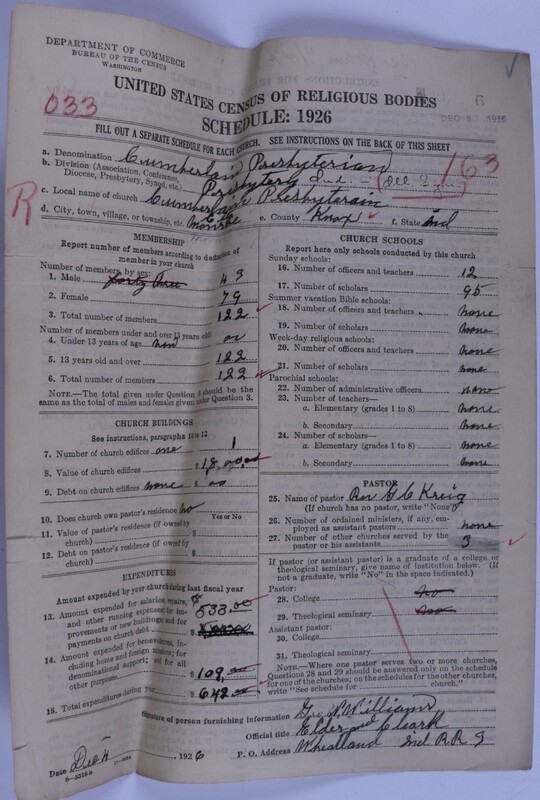 DEPARTMENT OF COMMERCE
BUREAU OF THE CENSUS
WASHINGTON
6
033
UNITED STATES CENSUS OF RELIGIOUS BODIES
SCHEDULE: 1926
FILL OUT A SEPARATE SCHEDULE FOR EACH CHURCH. SEE INSTRUCTIONS ON THE BACK OF THIS SHEET
a. Denomination Cumberland Presbyterian
163
b. Division (Association, Conference, Diocese, Presbytery, Synod, etc.) Presbytery Ind.
c. Local name of church Cumberland Presbyterian
R
d. City, town, village, or township, etc. e. County Knox f. State Ind
MEMBERSHIP
Report number of members according to definition of
member in your church
Number of members by sex:
1. Male forty three 43
2. Female 79
3. Total number of members 122
Number of members under and over 13 years old:
4. Under 13 years of age non oo
5. 13 years old and over 122
6. Total number of members 122
NOTE.—The total given under Question 6 should be the
same as the total of males and females given under Question 3.
CHURCH BUILDINGS
See instructions, paragraphs 10 to 12
7. Number of church edifices one 1
8. Value of church edifices $
9. Debt on church edifices none $ oo
10. Does church own pastor's residence? no
Yes or No
11. Value of pastor's residence (if owned by
church) $
12. Debt on pastor's residence (if owned by
church) $
EXPENDITURES
Amount expended by your church during last fiscal year
13. Amount expended for salaries, repairs,
and other running expenses; for im-
provements or new buildings; and for
payments on church debt $ 533.00
14. Amount expended for benevolences, in-
cluding home and foreign missions; for
denominational support; and for all
other purposes $ 109.00
15. Total expenditures during year $ 642.00
CHURCH SCHOOLS
Report here only schools conducted by this church
Sunday schools:
16. Number of officers and teachers 12
17. Number of scholars 95
Summer vacation Bible schools:
18. Number of officers and teachers none
19. Number of scholars none
Week-day religious schools:
20. Number of officers and teachers none
21. Number of scholars none
Parochial schools:
22. Number of administrative officers none
23. Number of teachers—
a. Elementary (grades 1 to 8) none
b. Secondary none
24. Number of scholars—
a. Elementary (grades 1 to 8) none
b. Secondary none
PASTOR
25. Name of pastor Rev G C Kreig
(If church has no pastor, write "None")
26. Number of ordained ministers, if any, em-
ployed as assistant pastors none
27. Number of other churches served by the
pastor or his assistants 3
If pastor (or assistant pastor) is a graduate of a college or
theological seminary, give name of institution below. (If
not a graduate, write "No" in the space indicated.)
Pastor:
28. College no
29. Theological seminary
Assistant pastor:
30. College
31. Theological seminary
NOTE.—Where one pastor serves two or more churches,
Questions 28 and 29 should be answered only on the schedule
for one of the churches; on the schedules for the other churches,
write "See schedule for church."
Signature of person furnishing information Geo W Williams
Official title Elder and Clark
Date Dec 1926 P. O. Address Wheatland Ind RR